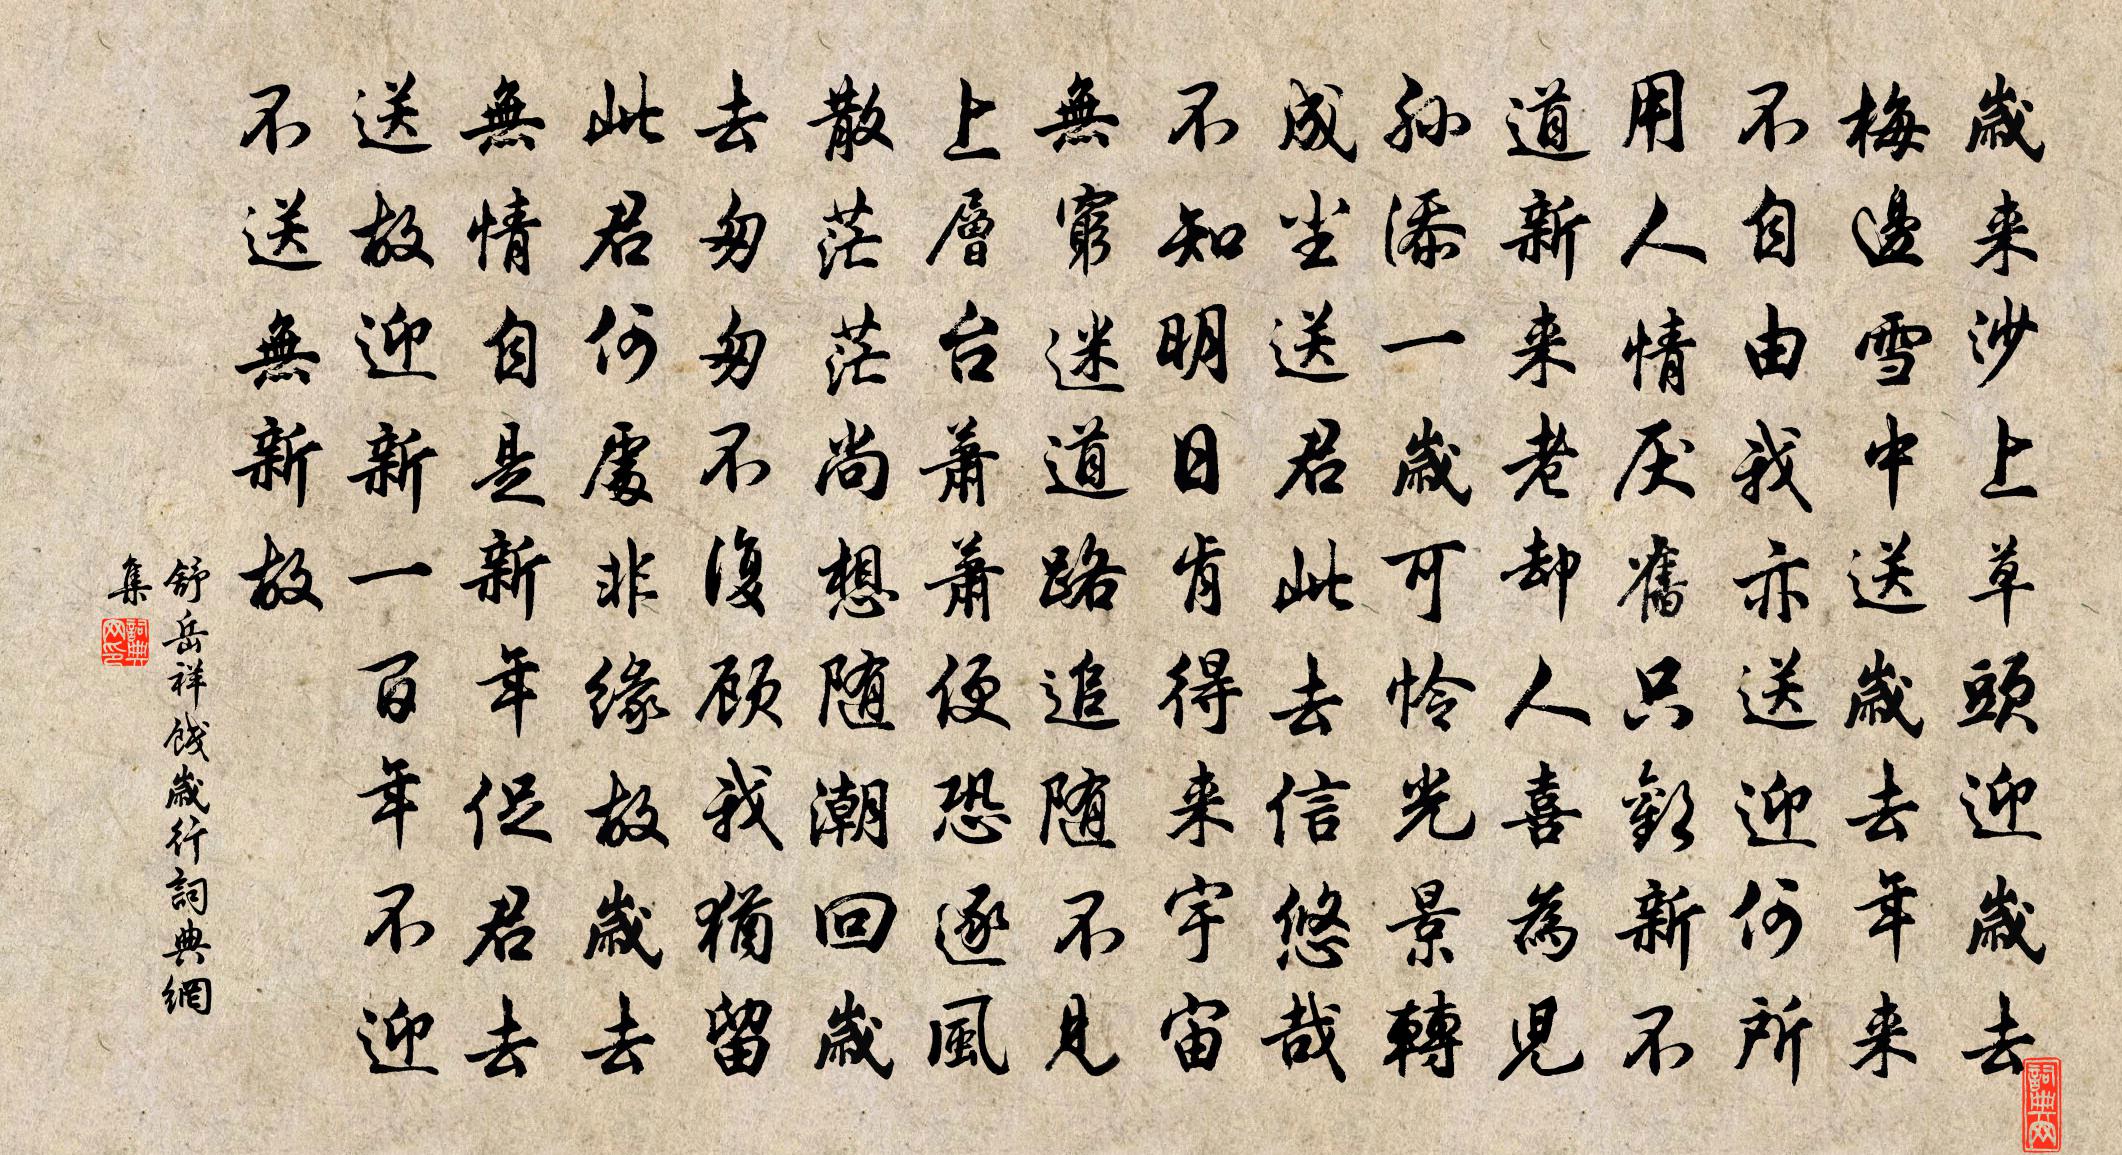 歲来沙上草頭迎歲去
梅邊雪中送歲去年来
不自由我亦送迎何所
用人情厌舊只歡新不
道新来老却人喜為児
孙添一歲可怜光景轉
成尘送君此去信悠哉
不知明日肯得来宇宙
無窮迷道路追随不見
上層台萧萧便恐逐風
散茫茫尚想随潮回歲
去匆匆不復顾我猶留
此君何處非缘故歲去
無情自是新年促君去
送故迎新一百年不迎
不送無新故
舒岳祥餞歲行詞典網
集
詞典网印
詞典网